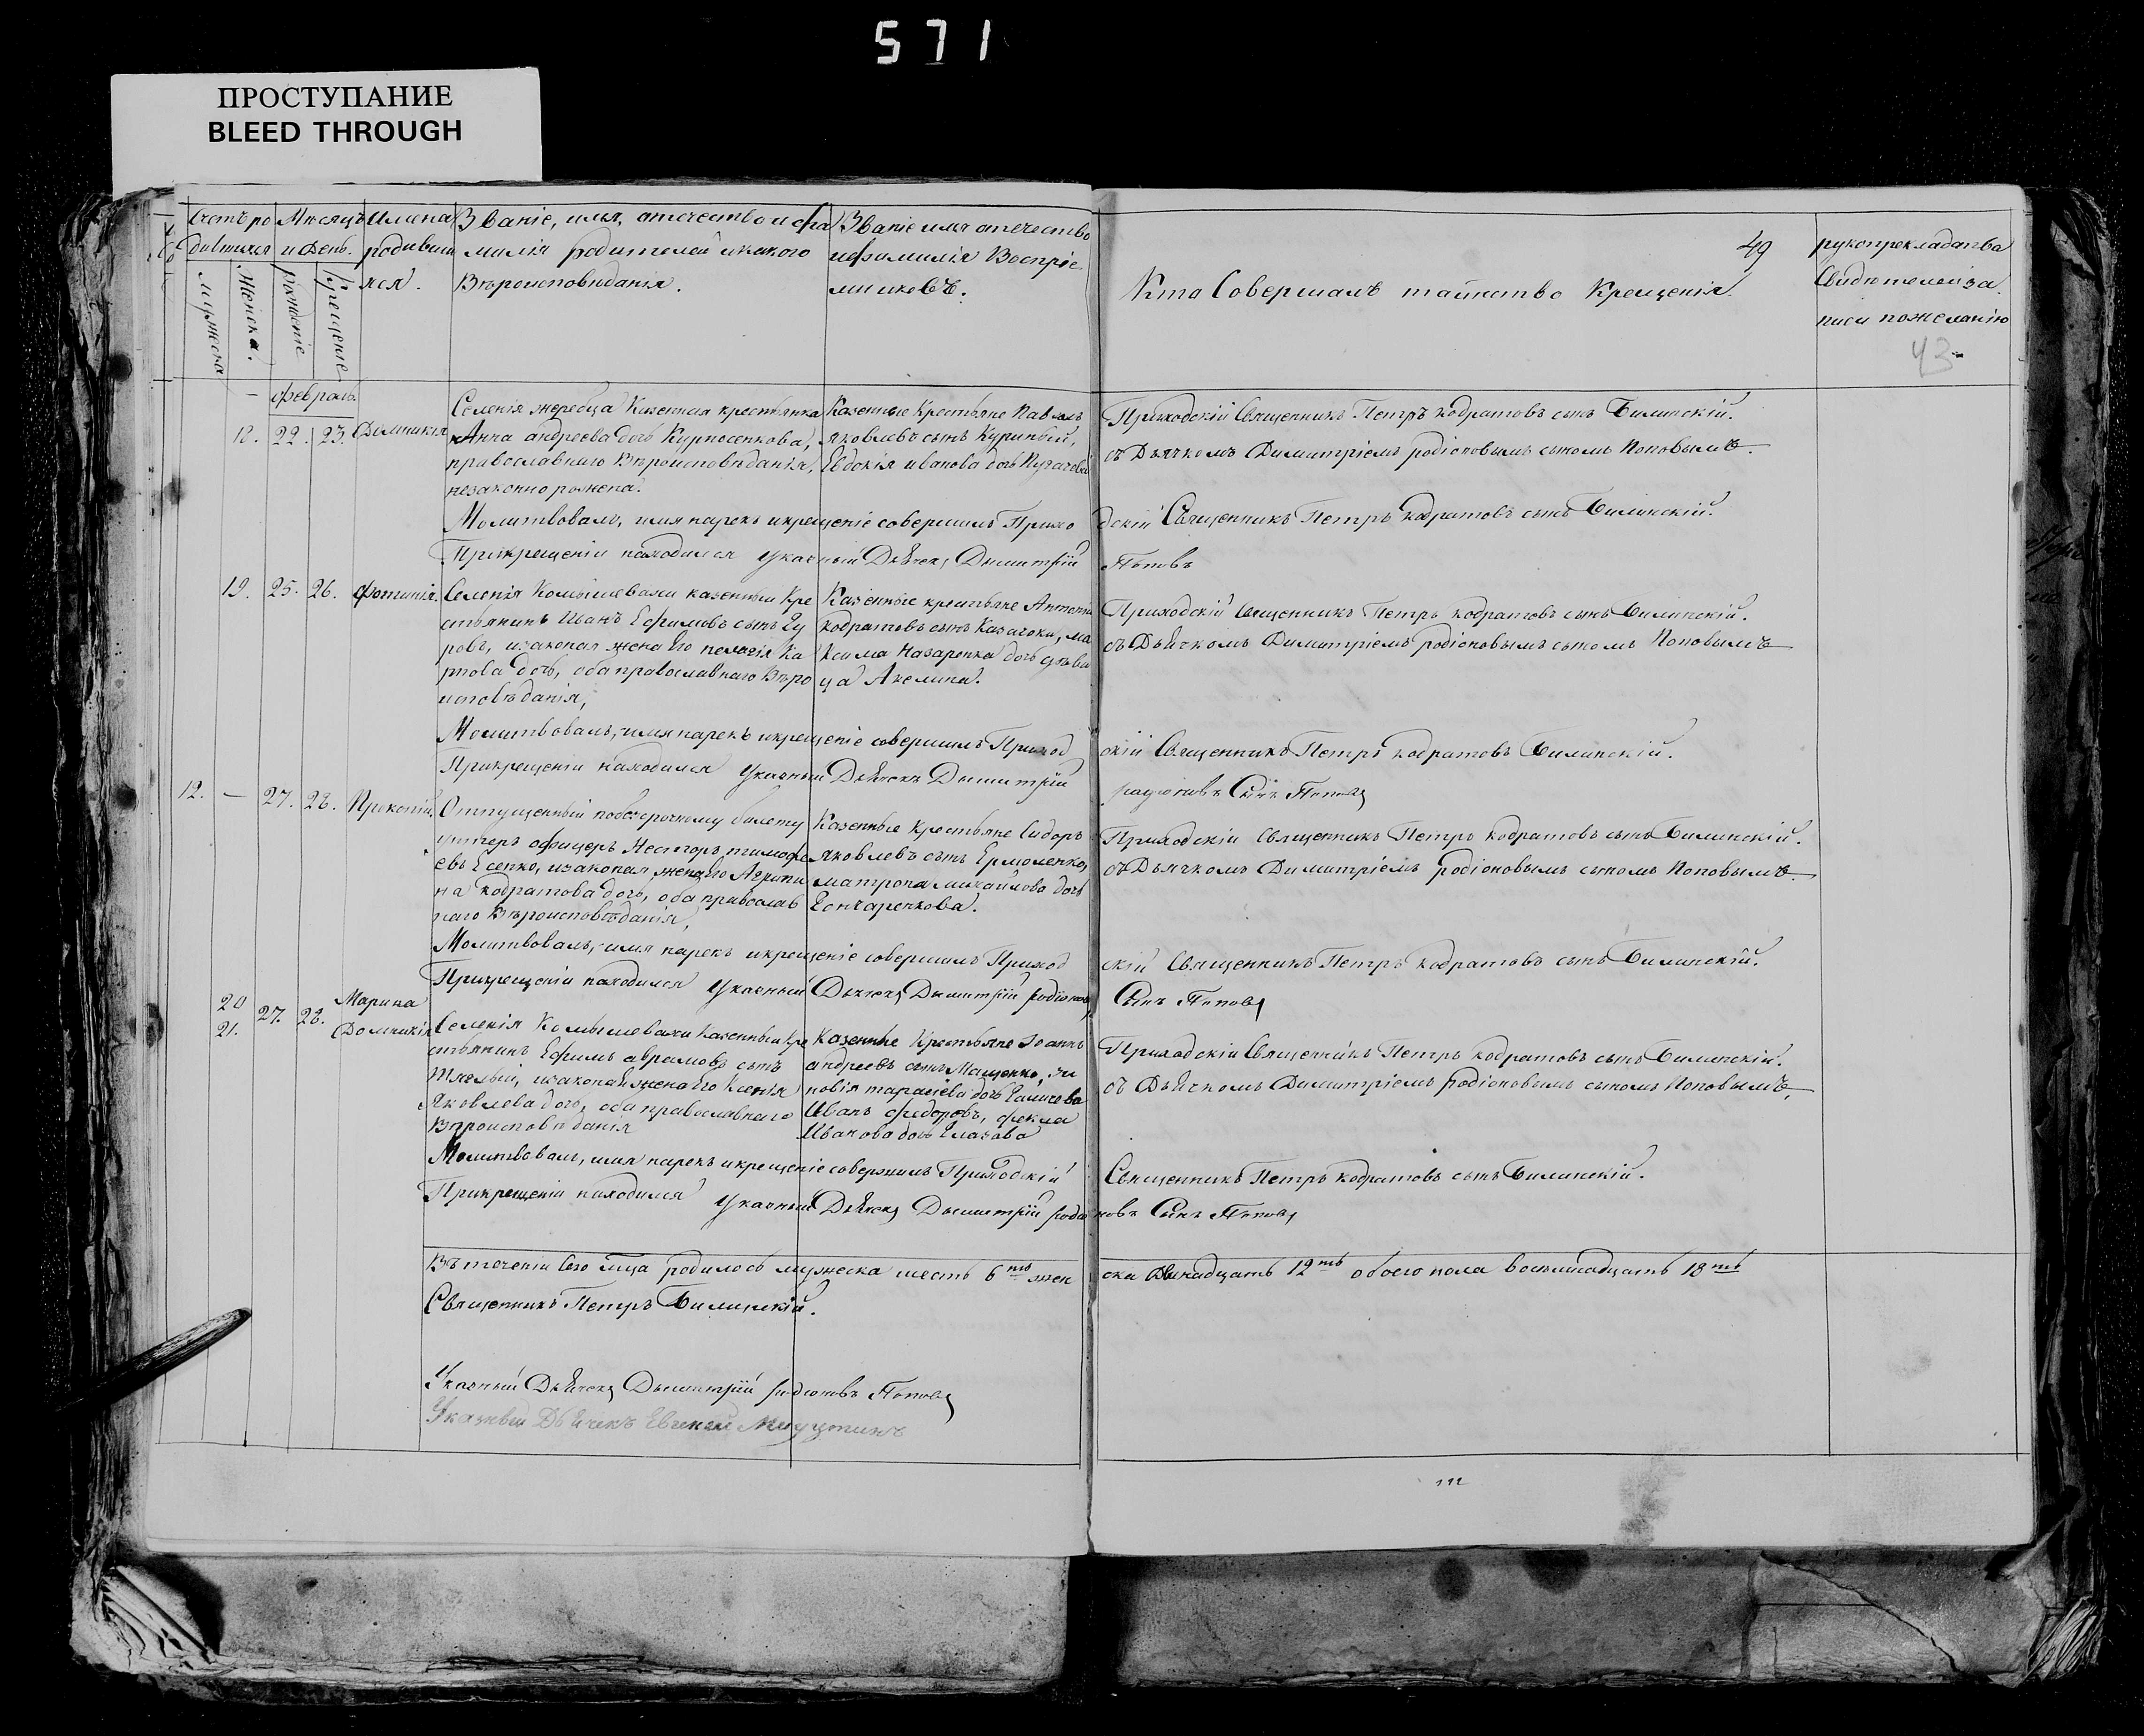 571
ПРОСТУПАНИЕ
BLEED THROUGH
Счетъ ро
дившихся
мужеска
Женска.
Мѣсяцъ
и День.
рожденіе
Крещеніе
Имена
родивши
хся.
Званіе, имя, отечество и фа
милія родителей и какого
Вѣроисповѣданія.
Званіе имя отечество
и фамилія Воспріе
мниковъ.
49
Кто Совершалъ таинство Крещенія.
рукоприкладства
Свидѣтелей за
писи по желанію
43
февраль
18. 22. 23. Домникія
Селенія жеребца Казенная крестьянка
Анна андреева дочь Курносенкова,
православнаго Вѣроисповѣданія,
незаконно рожена.
Казенные Крестьяне Павелъ
яковлевъ сынъ Куринный,
Евдокія иванова дочь
Приходскій Священникъ Петръ кодратовъ сынъ Билинскій.
съ Дьячкомъ Димитріемъ родіоновымъ сыномъ Поповымъ.
Молитвовалъ, имя нарекъ и крещеніе совершилъ Прихо
дскій Священникъ Петръ кодратовъ сынъ Билинскій.
При крещеніи находился Указный Дьячекъ Димитрій
Поповъ
19. 25. 26. Фотинія.
Селенія Комышевахи казенный Кре
стьянинъ Иванъ Ефимовъ сынъ Гу
ровъ, и законная жена Его пелагія Ка
рпова дочь, оба православнаго Вѣро
исповѣданія,
Казенные крестьяне Антоній
кодратовъ сынъ Казачокъ, ма
ксима Назаренка дочь дѣви
ца Акелина.
Приходскій Священникъ Петръ кодратовъ сынъ Билинскій.
съ Дьячкомъ Димитріемъ родіоновымъ сыномъ Поповымъ
Молитвовалъ, имя нарекъ и крещеніе совершилъ Приход
скій Священникъ Петръ кодратовъ Билинскій.
При крещеніи находился Указный Дьячекъ Димитрій
родіоновъ Сынъ Поповъ
12. — 27. 28. Прокопій.
Отпущенный по безсрочному билету
унтеръ офицеръ Несторъ тимофе
евъ Есепко, и законная жена Его Агрипи
на кодратова дочь, оба православ
наго Вѣроисповѣданія,
Казенные Крестьяне Сидоръ
яковлевъ сынъ Ермоленко,
матрона михайлова дочь
Гончаренкова.
Приходскій Священникъ Петръ кодратовъ сынъ Билинскій.
съ Дьячкомъ Димитріемъ родіоновымъ сыномъ Поповымъ.
Молитвовалъ, имя нарекъ и крещеніе совершилъ Приход
скій Священникъ Петръ кодратовъ сынъ Билинскій.
При крещеніи находился Указный Дьячекъ Димитрій родіоновъ
Сынъ Поповъ
20
21. 27. 28.
Марина
Домникія
Селенія Комышевахи Казенный Кре
стьянинъ Ефимъ аврамовъ сынъ
Тяглый, и законная жена Его Ксенія
Яковлева дочь, оба православнаго
Вѣроисповѣданія
Казенные Крестьяне Іоаннъ
андреевъ сынъ Мащенко, зи
новія тарасіева дочь
Иванъ федоровъ, фекла
Иванова дочь Глазова
Приходскій Священникъ Петръ кодратовъ сынъ Билинскій.
съ Дьячкомъ Димитріемъ родіоновымъ сыномъ Поповымъ,
Молитвовалъ, имя нарекъ и крещеніе совершилъ Приходскій
Священникъ Петръ кодратовъ сынъ Билинскій.
При крещеніи находился Указный Дьячекъ Димитрій родіо
новъ Сынъ Поповъ
Въ теченіи сего мѣсяца родилось мужеска шесть 6ть жен
ска двенадцать 12ть обоего пола восьмнадцать 18ть
Священникъ Петръ Билинскій.
Указный Дьячекъ Димитрій родіоновъ Поповъ
Указный Дьячекъ Евгеній